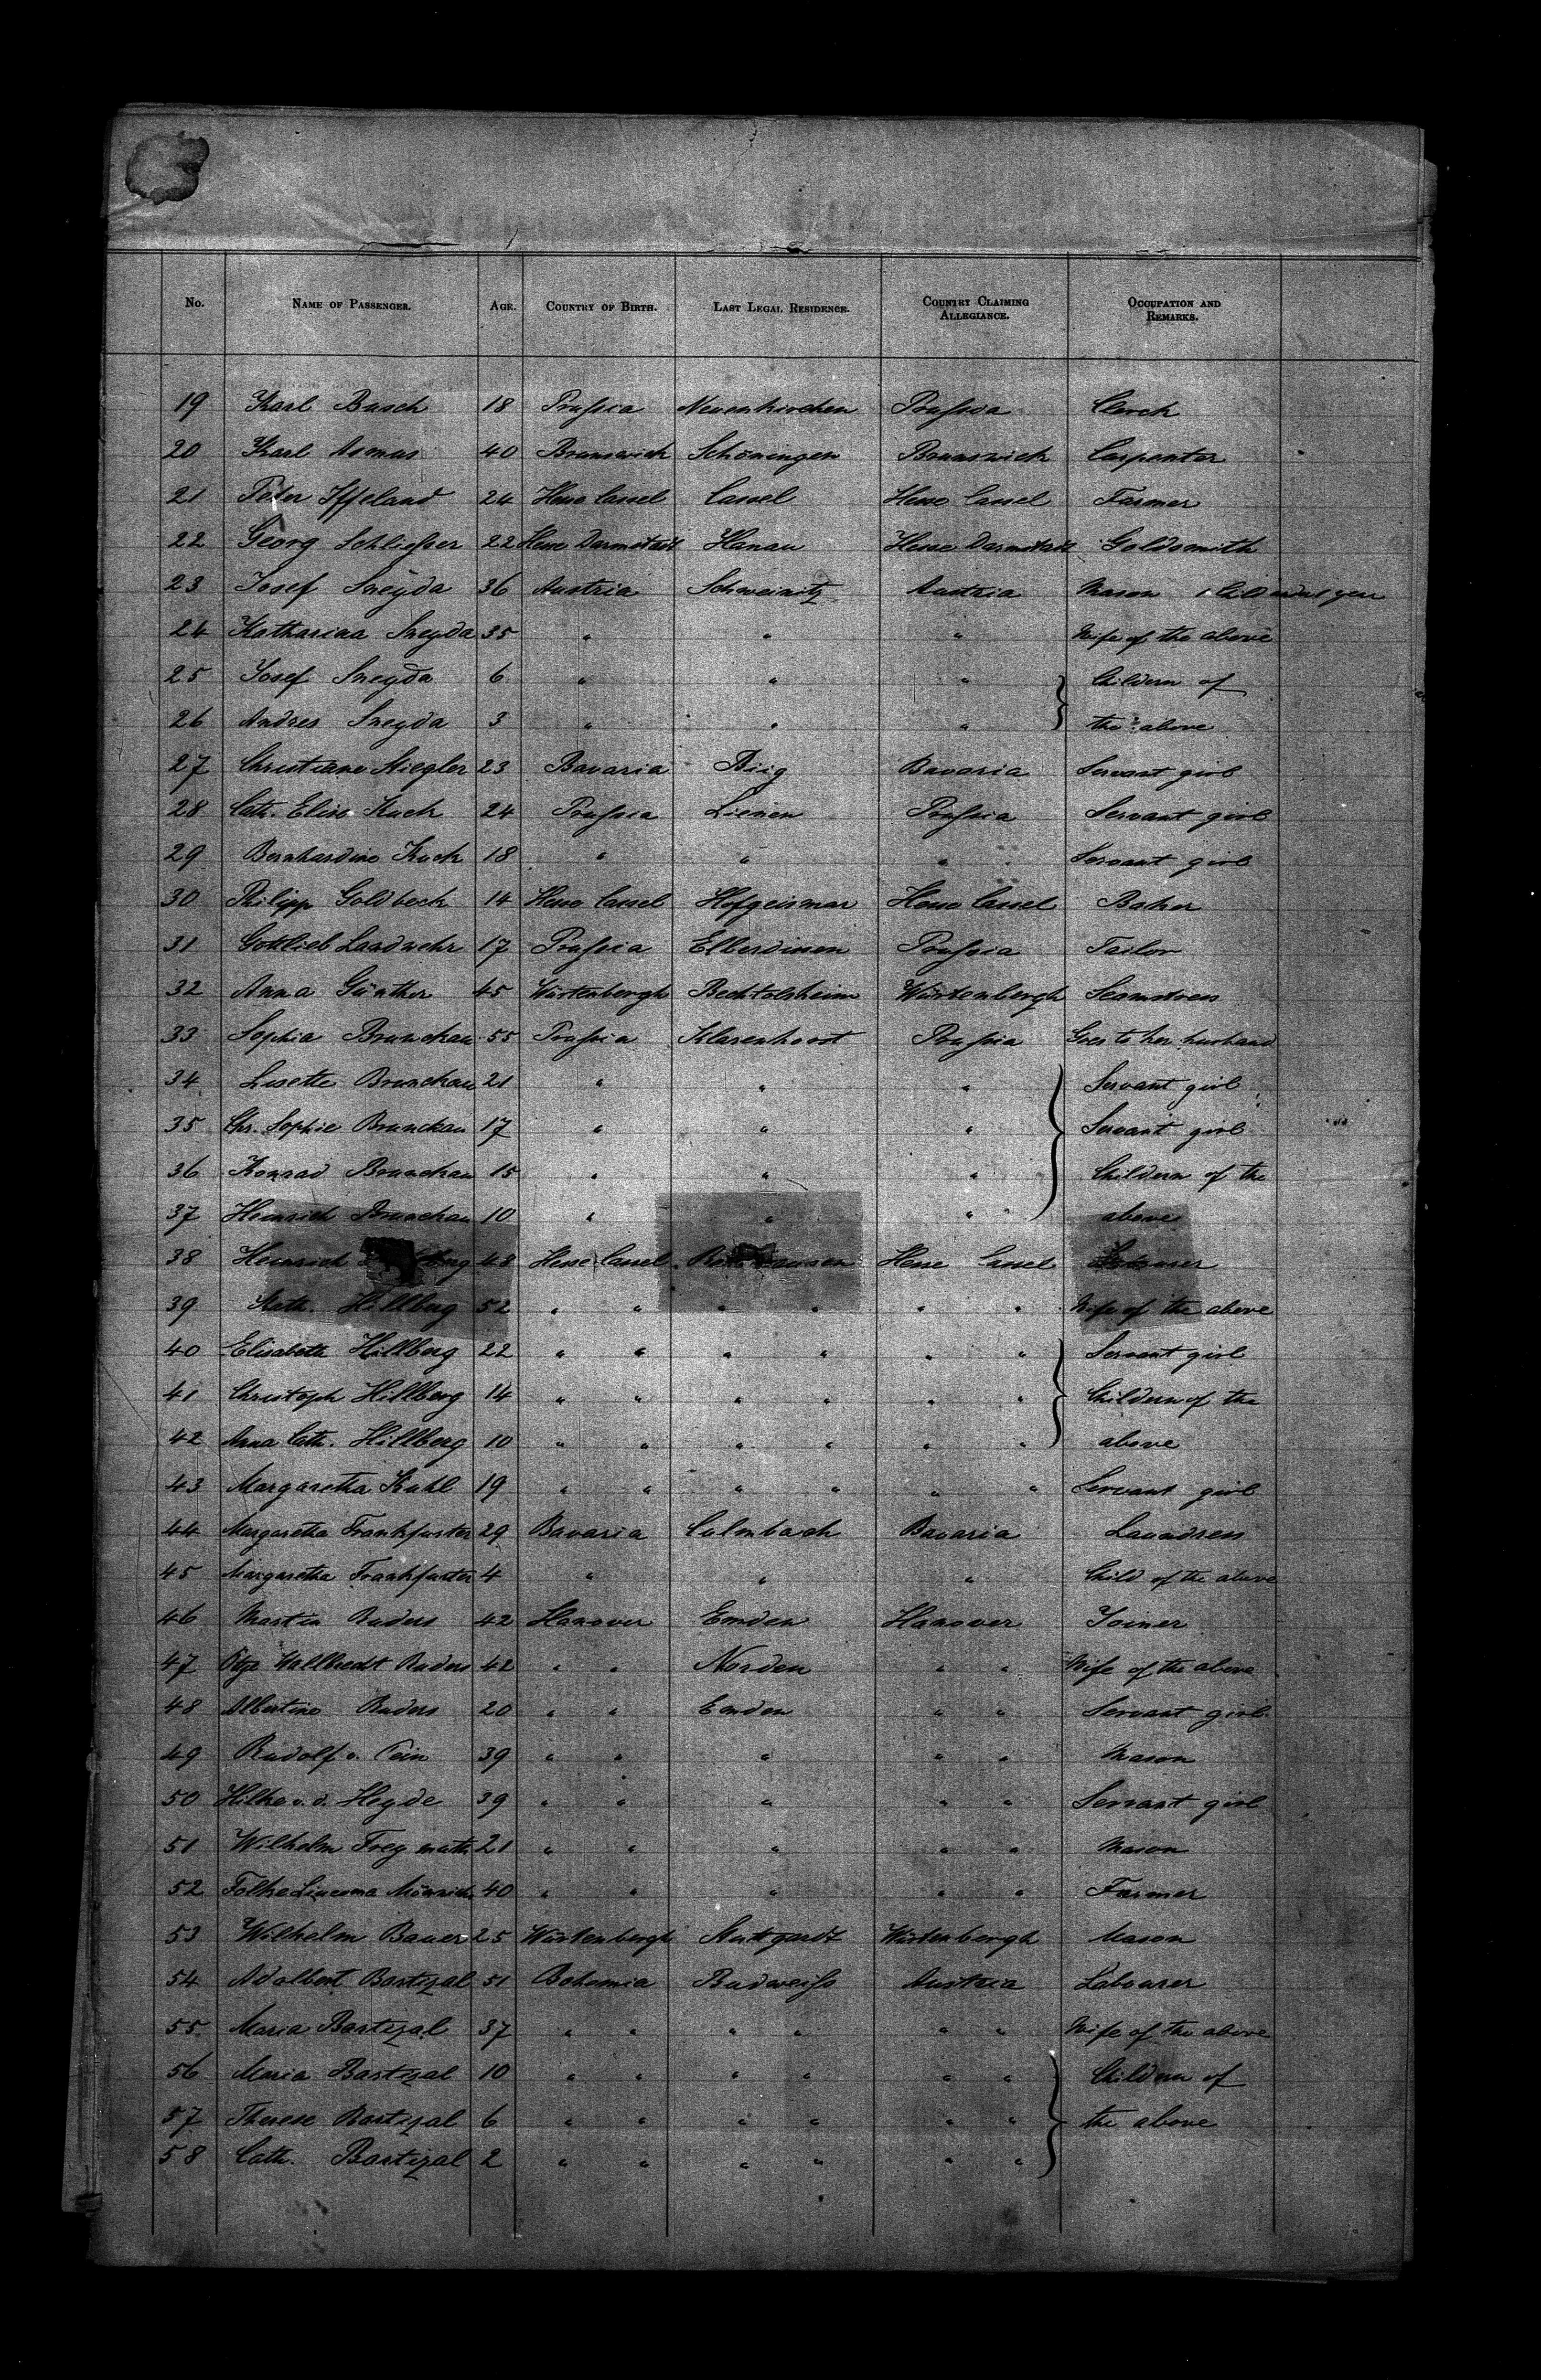 No. NAME OF PASSENGER. AGE. COUNTRY OF BIRTH. LAST LEGAL RESIDENCE. COUNTRY CLAIMING ALLEGIANCE. OCCUPATION AND REMARKS.
19 Karl Busch 18 Prussia Neuenkirchen Prussia Clerck
20 Karl Asmus 40 Brunswick Schöningen Brunswick Carpenter
21 Peter Iffeland 24 Hesse Cassel Cassel Hesse Cassel Farmer
22 Georg Schliesser 22 Hesse Darmstadt Hanau Hesse Darmstadt Goldsmith
23 Josef Sneyda 36 Austria Schweinitz Austria Mason 1 year
24 Katharina Sneyda 35 " " " Wife of the above
25 Josef Sneyda 6 " " " Childern of
26 Andres Sneyda 3 " " " the above
27 Christiane 23 Bavaria Bavaria Servant girl
28 Cath. Elise Kuck 24 Prussia Lienen Prussia Servant girl
29 Bernhardine Kuck 18 " " " Servant girl
30 Philipp Goldbeck 14 Hesse Cassel Hofgeismar Hesse Cassel Baker
31 Gottlieb Landwehr 17 Prussia Elberdissen Prussia Tailor
32 Anna Günther 45 Würtenbergh Bechtolsheim Würtenbergh Seamstress
33 Sophia Brunckau 55 Prussia Klarenhorst Prussia Goes to her husband
34 Lisette Brunckau 21 " " " Servant girl
35 Chr. Sophie Brunckau 17 " " " Servant girl
36 Konrad Brunckau 15 " " " Childern of the
37 Heinrich Brunckau 10 " " " above
38 Heinrich 48 Hesse Cassel Hesse Cassel
39 Kath. Hillberg 52 " " " " " " Wife of the above
40 Elisabeth Hillberg 22 " " " " " " Servant girl
41 Christoph Hillberg 14 " " " " " " Childern of the
42 Anna Cath. Hillberg 10 " " " " " " above
43 Margaretha Kuhl 19 " " " " " " Servant girl
44 Margaretha Frankfurter 29 Bavaria Culmbach Bavaria Laundress
45 Margaretha Frankfurter 4 " " " Child of the above
46 Martin Ruders 42 Hanover Emden Hanover Joiner
47 Ruders 42 " " Norden " " Wife of the above
48 Albertine Ruders 20 " " Emden " " Servant girl
49 Rudolf v. 39 " " " " " Mason
50 Hilke v. d. Heyde 39 " " " " " Servant girl
51 Wilhelm Freymuth 21 " " " " " Mason
52 40 " " " " " Farmer
53 Wilhelm Bauer 25 Würtenbergh Stuttgardt Würtenbergh Mason
54 Adalbert Bartizal 51 Bohemia Budweiss Austria Labourer
55 Maria Bartizal 37 " " " " " " Wife of the above
56 Maria Bartizal 10 " " " " " " Childern of
57 Therese Bartizal 6 " " " " " " the above
58 Cath. Bartizal 2 " " " " " "